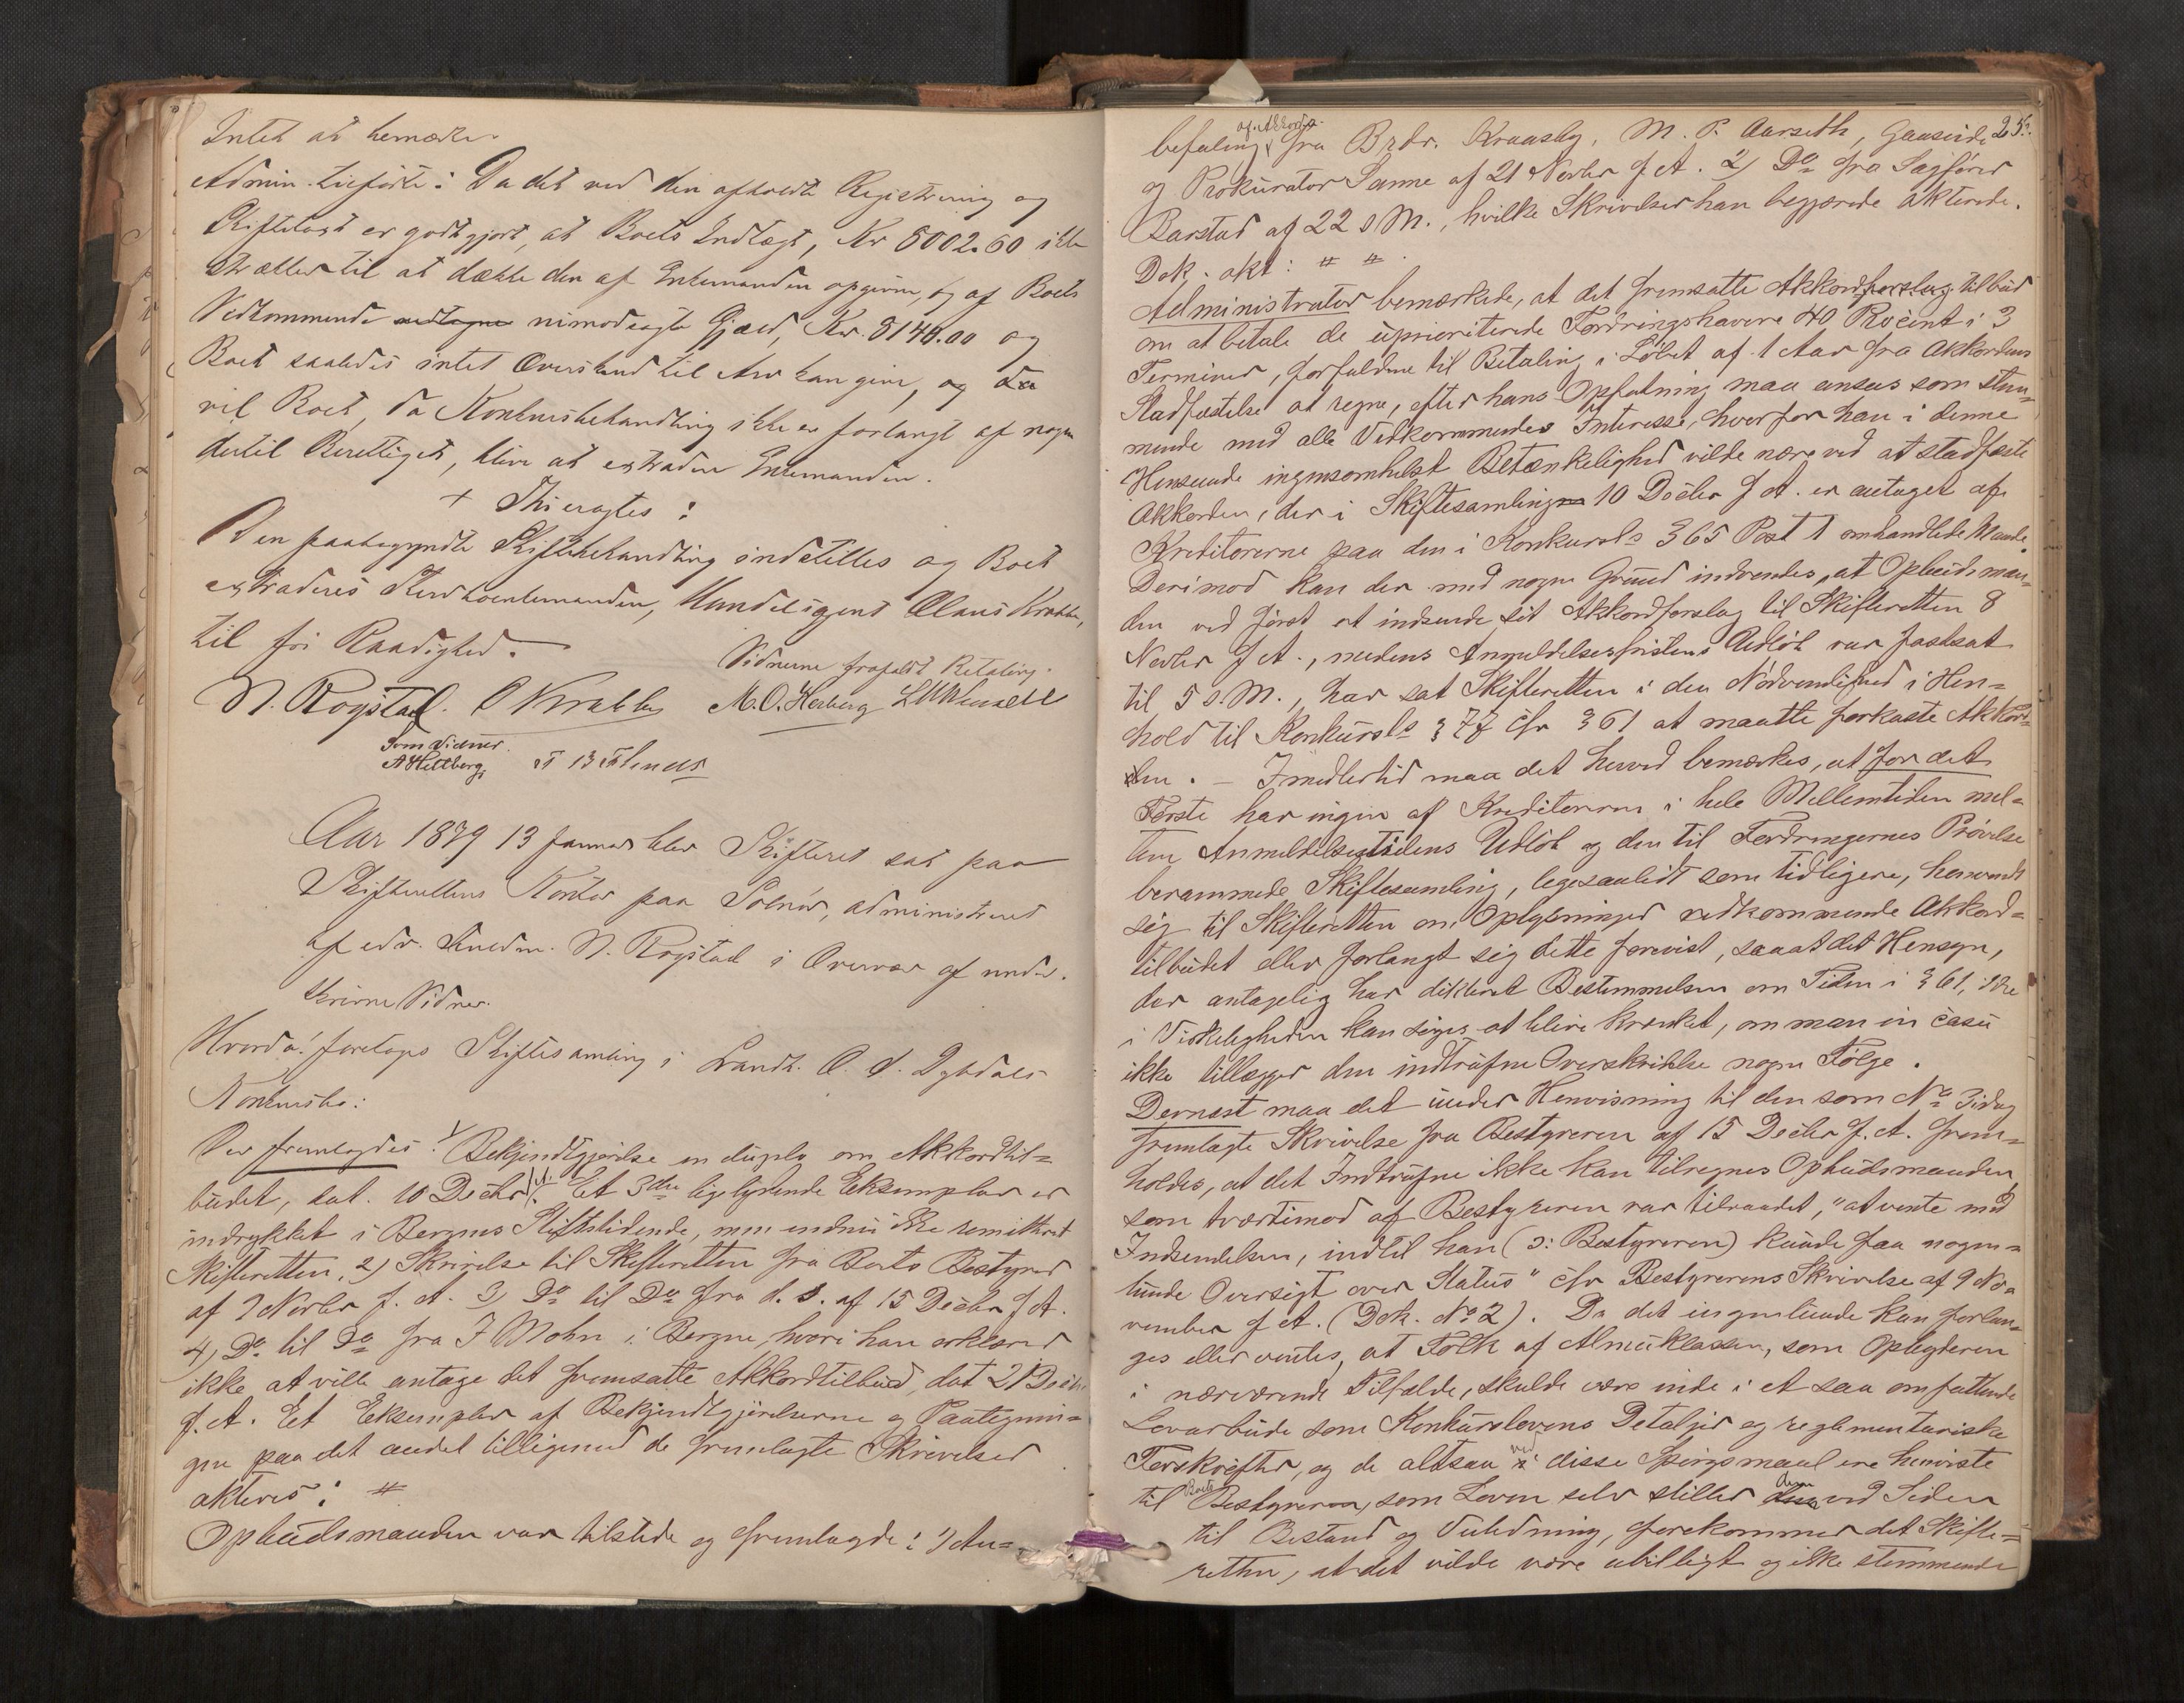 Intet at bemærke.
Admin. tilføiede: Da det ved den afholdte Registrering og
Skiftetaxt er godtgjort, at Boets Indtægt, Kr 5002.60 ikke
strækker til at dække den af Enkemanden opgivne, og af Boets
Vedkommende vedtagne uimodsagte Gjæld, Kr. 5146.00 og
Boet saaledes intet Overskud til Arv kan give, og da
vil Boet, da Konkursbehandling ikke er forlangt af nogen
dertil Berettiget, blive at extradere Enkemanden.
+ Thi eragtes:
Den paabegyndte Skiftebehandling indstilles og Boet
extraderes Stervboenkemanden, Handelsagent Claus Krabbe,
til fri Raadighed.
Vidnerne frafaldt Betaling.
N. Rogstad. C Krabbe M. O. Herberg
Som Vidner.
A Heltberg
Aar 1879 13 Januar blev Skifteret sat paa
Skifterettens Kontor paa Solnør, administreret
af edsv. Fuldm. N. Rogstad i Overvær af under-
skrevne Vidner.
Hvorda! foretoges Skiftesamling i Landh. O. A. Dybdals
Konkursbo:
Der fremlagdes: 1) Bekjendtgjørelse en duplo om Akkordtil=
budet, dat. 10 Decbr f. A. Et 3die ligelydende Eksemplar er
indrykket i Bergens Stiftstidende, men endnu ikke remitteret
Skifteretten, 2) Skrivelse til Skifteretten fra Boets Bestyrer
af 9 Novbr f. A. 3) Do til Do fra d. s. af 15 Decbr f A.
4) Do til Do fra J Mohn i Bergen, hvori han erklærer
ikke at ville antage det fremsatte Akkordtilbud, dat 21 Decbr
f. A. Et Eksemplar af Bekjendtgjørelserne og Paategnin=
gen paa det andet tilligemed de fremlagte Skrivelser
akteres: #
Opbudsmanden var tilstede og fremlagde: 1) An=
25.
befaling af Akkorden fra Brdr. Kraasby, M. P. Aarseth, Gaaseide
og Prokurator Sanne af 21 Novbr f A. 2) Do fra Sagfører
Barstad af 22 s M., hvilke Skrivelser han begjærede akterede.
Dok. akt: # #.
Administrator bemærkede, at det fremsatte Akkordforslag tilbud
om at betale de uprioriterede Fordringshavere 40 Procent i 3
Terminer, forfaldne til Betaling i Løbet af 1 Aar fra Akkordens
Stadfæstelse at regne, efter hans Opfatning maa ansees som stem=
mende med alle Vedkommendes Interesse, hvorfor han i denne
Henseende ingensomhelst Betænkelighed vilde nære ved at stadfæste
Akkorden, der i Skiftesamling 10 Decbr f A. er antaget af
Kreditorerne paa den i Konkursls § 65 Post 1 omhandlede Maade.
Derimod kan der med nogen Grund indvendes, at Opbudsman=
den ved først at indsende sit Akkordforslag til Skifteretten 8
Novbr f A., medens Anmeldelsesfristens Udløb var fastsat
til 5 s. M., har sat Skifteretten i den Nødvendighed i Hen=
hold til Konkursls § 77 cfr § 61 at maatte forkaste Akkor=
den. – Imidlertid maa det herved bemærkes, at for det
Første har ingen af Kreditorerne i hele Mellemtiden mel=
lem Anmeldelsestidens Udløb og den til Fordringernes Prøvelse
berammede Skiftesamling, ligesaalidt som tidligere, henvendt
sig til Skifteretten om Oplysninger vedkommende Akkord=
tilbudet eller forlangt sig dette forevist, saaat det Hensyn,
der antagelig har dikteret Bestemmelsen om Tiden i § 61, ikke
i Virkeligheden kan siges at blive krænket, om man in casu
ikke tillægger den indtrufne Overskridelse nogen Følge.
Dernæst maa det under Henvisning til den som No 3 idag
fremlagte Skrivelse fra Bestyreren af 15 Decbr f. A. frem=
holdes, at det Indtrufne ikke kan tilregnes Opbudsmanden,
som tvertimod af Bestyreren var tilraadet, "at vente med
Indsendelsen, indtil han (ɔ: Bestyreren) kunde faa nogen=
lunde Oversigt over Status" cfr Bestyrerens Skrivelse af 9 No=
vember f A. (Dok. No 2). Da det ingenlunde kan forlan=
ges eller ventes, at Folk af Almueklassen, som Opbyderen
i nærværende Tilfælde, skulde være inde i et saa omfattende
Lovarbeide som Konkurslovens Detaljer og reglementariske
Forskrifter, og de altsaa ved disse Spørgsmaal ere henviste
til Boets Bestyrer, som Loven selv stiller dem ved Siden
til Bistand og Veiledning, forekommer det Skifte=
retten, at det vilde være ubilligt og ikke stemmende